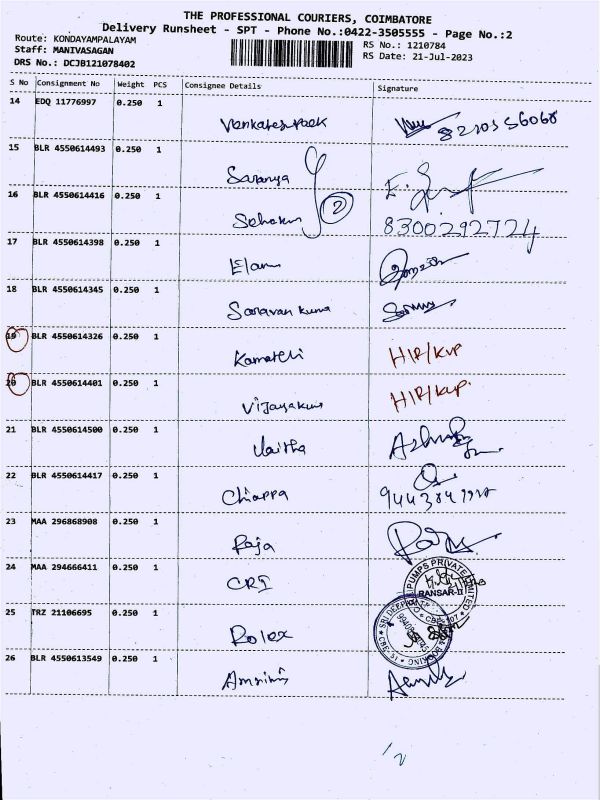 THE PROFESSIONAL COURIERS, COIMBATORE
Delivery Runsheet - SPT - Phone No.:0422-3505555 - Page No.:2
Route: KONDAYAMPALAYAM
RS No.: 1210784
Staff: MANIVASAGAN
RS Date: 21-Jul-2023
DRS No.: DCJB121078402
S No Consignment No Weight PCS Consignee Details Signature
14 EDQ 11776997 0.250 1
15 BLR 4550614493 0.250 1
Saranya
16 BLR 4550614416 0.250 1
2
8300292724
17 BLR 4550614398 0.250 1
18 BLR 4550614345 0.250 1
Saravan kuma
19 BLR 4550614326 0.250 1
H/R/KVP
20 BLR 4550614401 0.250 1
H/R/KVP.
21 BLR 4550614500 0.250 1
22 BLR 4550614417 0.250 1
Chiappa
23 MAA 296868908 0.250 1
Raja
24 MAA 294666411 0.250 1
CRI
PUMPS PRIVATE LIMITED
25 TRZ 21106695 0.250 1
Rolex
26 BLR 4550613549 0.250 1